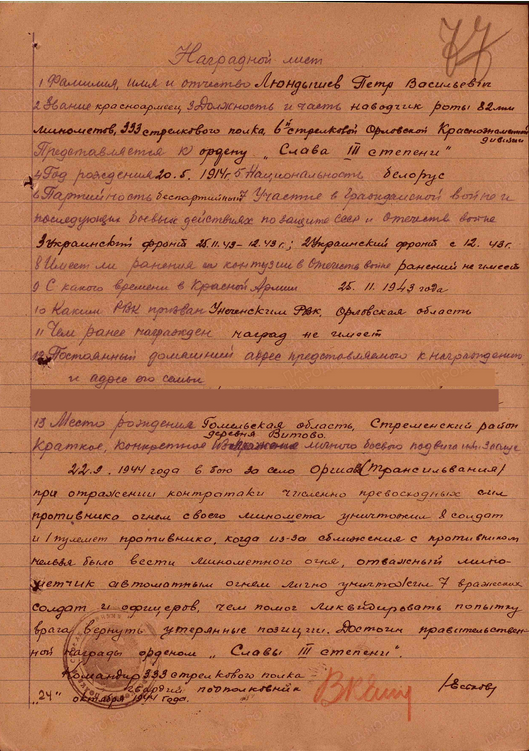 77
Наградной лист
1 Фамилия, имя и отчество Люндышев Петр Васильевич
2 Звание красноармеец 3 Должность и часть наводчик роты 82 мм
минометов, 333 стрелкового полка, 6й стрелковой Орловской Краснознаменной дивизии
Представляется к ордену „Слава III степени"
4 Год рождения 20.5.1914 5 Национальность белорус
6 Партийность беспартийный 7 Участие в Гражданской войне и
последующих боевых действиях по защите СССР и отечеств войне
3 Украинский фронт 25.11.43 – 12.43 г.; 2 Украинский фронт с 12.43 г.
8 Имеет ли ранения и контузии в Отечеств войне ранений не имеет
9 С какого времени в Красной Армии 25.11.1943 года
10 Каким РВК призван РВК, Орловская область
11 Чем ранее награжден наград не имеет
12 Постоянный домашний адрес представляемого к награждению
и адрес его семьи
13 Место рождения Гомельская область, Стременский район
деревня Витово.
Краткое, конкретное личного боевого подвига или заслуг
22.9.1944 года в бою за село Оршов (Трансильвания)
при отражении контратаки численно превосходных сил
противника огнем своего миномета уничтожил 8 солдат
и 1 пулемет противника, когда из-за сближения с противником
нельзя было вести минометного огня, отважный мино-
метчик автоматным огнем лично уничтожил 7 вражеских
солдат и офицеров, чем помог ликвидировать попытку
врага вернуть утерянные позиции. Достоин правительствен-
ной награды орденом „Славы III степени".
Командир 333 стрелкового полка
гвардии подполковник
„24" октября 1944 года.